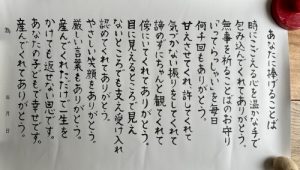 あなたに捧げることは
時にこごえた心を温かな手で
包み込んでくれてありがとう。
無事を祈ることばのお守り
いってらっしゃいを毎日
何千回もありがとう。
甘えさせてくれ 許してくれて
気づかない振りをしてくれて
諦めずにちゃんと観てくれて
傍にいてくれてありがとう。
目に見えるところで見え
ないところでも支え受け入れ
認めてくれてありがとう。
やさしい笑顔をありがとう。
厳しい言葉もありがとう。
産んでくれただけで一生を
かけても返せない恩です。
あなたの子どもで幸せです。
産んでくれてありがとう。